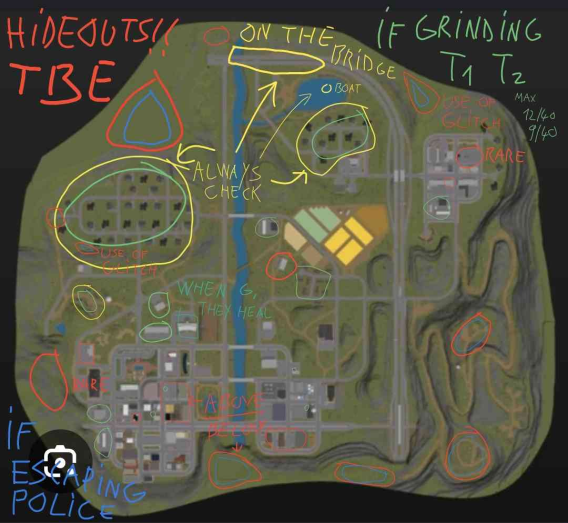 HiDEOUTS!!
TBE
ON THE
BRIDGE
iF GRINDING
T1 T2
MAX
12/40
9/40
BOAT
USE OF
GLITCH
RARE
ALWAYS
CHECK
USE OF
GLITCH
WHEN G,
THEY HEAL
RARE
ABOVE
BELOW
iF
ESCAPING
POLICE